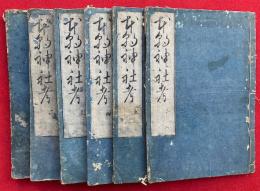 本朝神社考
本朝神社考
本朝神社考
本朝神社考
本朝神社考